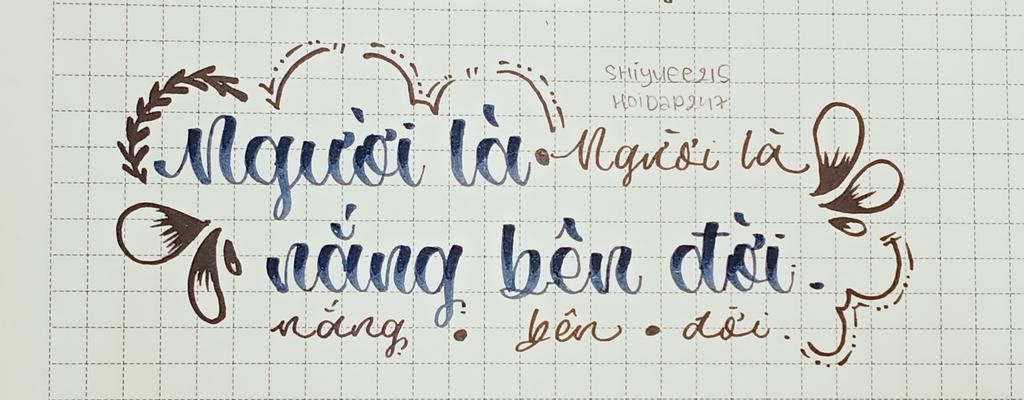 SHIYUEE215
HOIDAP247
Người là • Người là
nắng bên đời.
nắng • bên • đời.